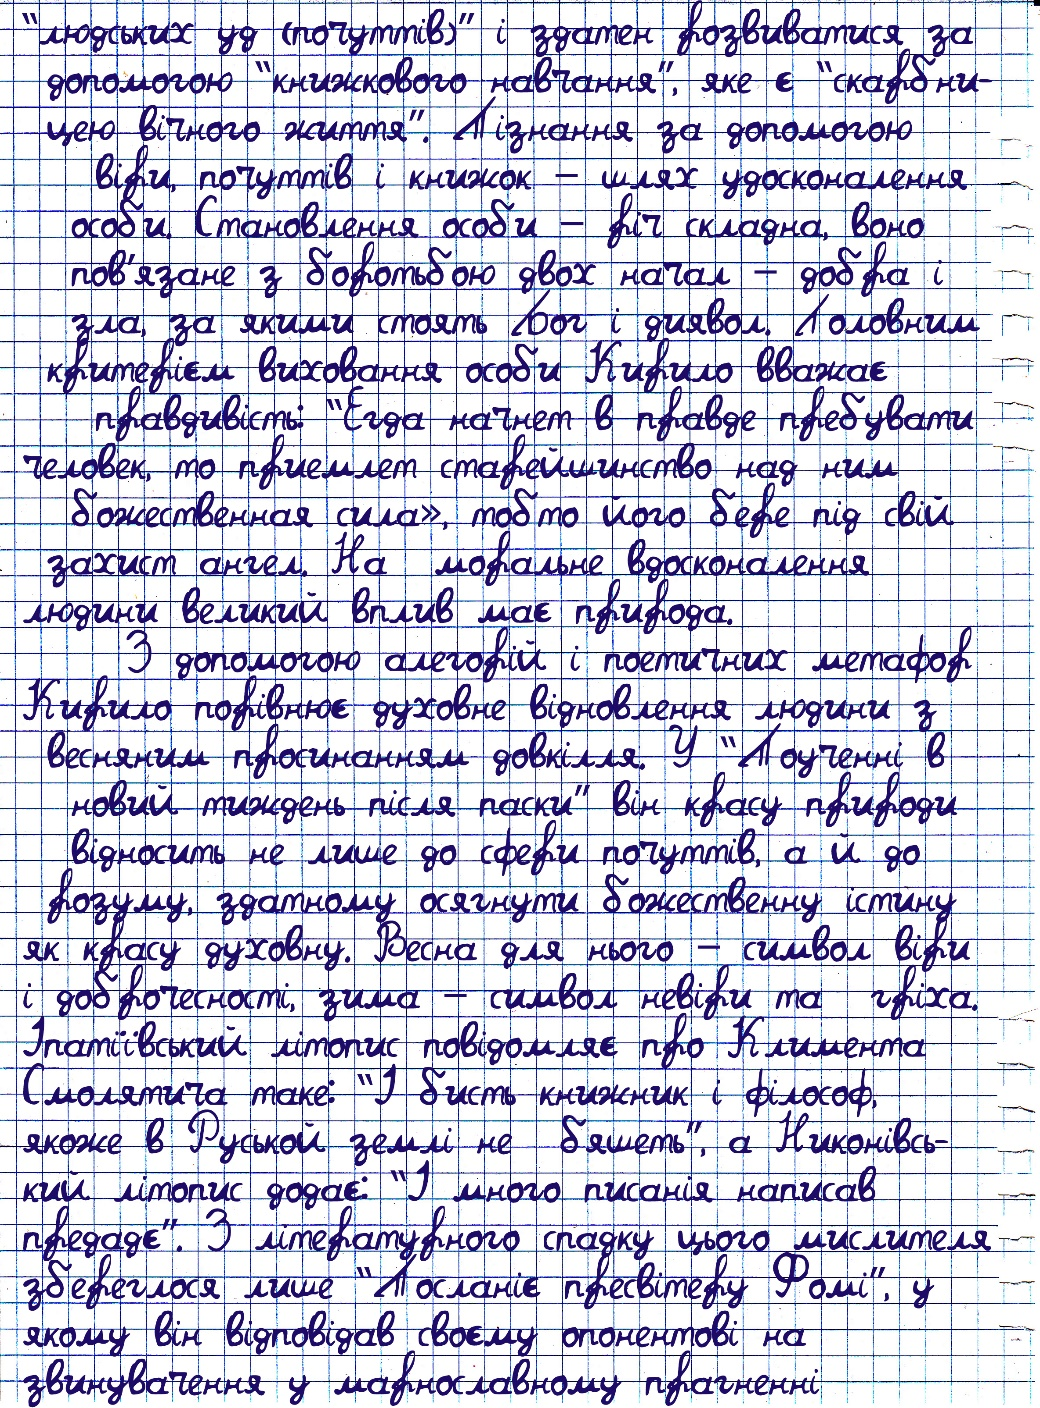 "людських уд (почуттів)" і здатен розвиватися за
допомогою "книжкового навчання", яке є "скарбни-
цею вічного життя". Пізнання за допомогою
віри, почуттів і книжок – шлях удосконалення
особи. Становлення особи – річ складна, воно
пов'язане з боротьбою двох начал – добра і
зла, за якими стоять Бог і диявол. Головним
критерієм виховання особи Кирило вважає
правдивість: "Егда начнет в правде пребувати
человек, то приемлет старейшинство над ним
божественная сила», тобто його бере під свій
захист ангел. На моральне вдосконалення
людини великий вплив має природа.
З допомогою алегорій і поетичних метафор
Кирило порівнює духовне відновлення людини з
весняним просинанням довкілля. У "Поученні в
новий тиждень після паски" він красу природи
відносить не лише до сфери почуттів, а й до
розуму, здатному осягнути божественну істину
як красу духовну. Весна для нього – символ віри
і доброчесності, зима – символ невіри та гріха.
Іпатіївський літопис повідомляє про Климента
Смолятича таке: "І бисть книжник і філософ,
якоже в Руськой землі не бяшеть", а Никонівсь-
кий літопис додає: "І много писанія написав
предадє". З літературного спадку цього мислителя
збереглося лише "Посланіє пресвітеру Фомі", у
якому він відповідав своєму опонентові на
звинувачення у марнославному прагненні